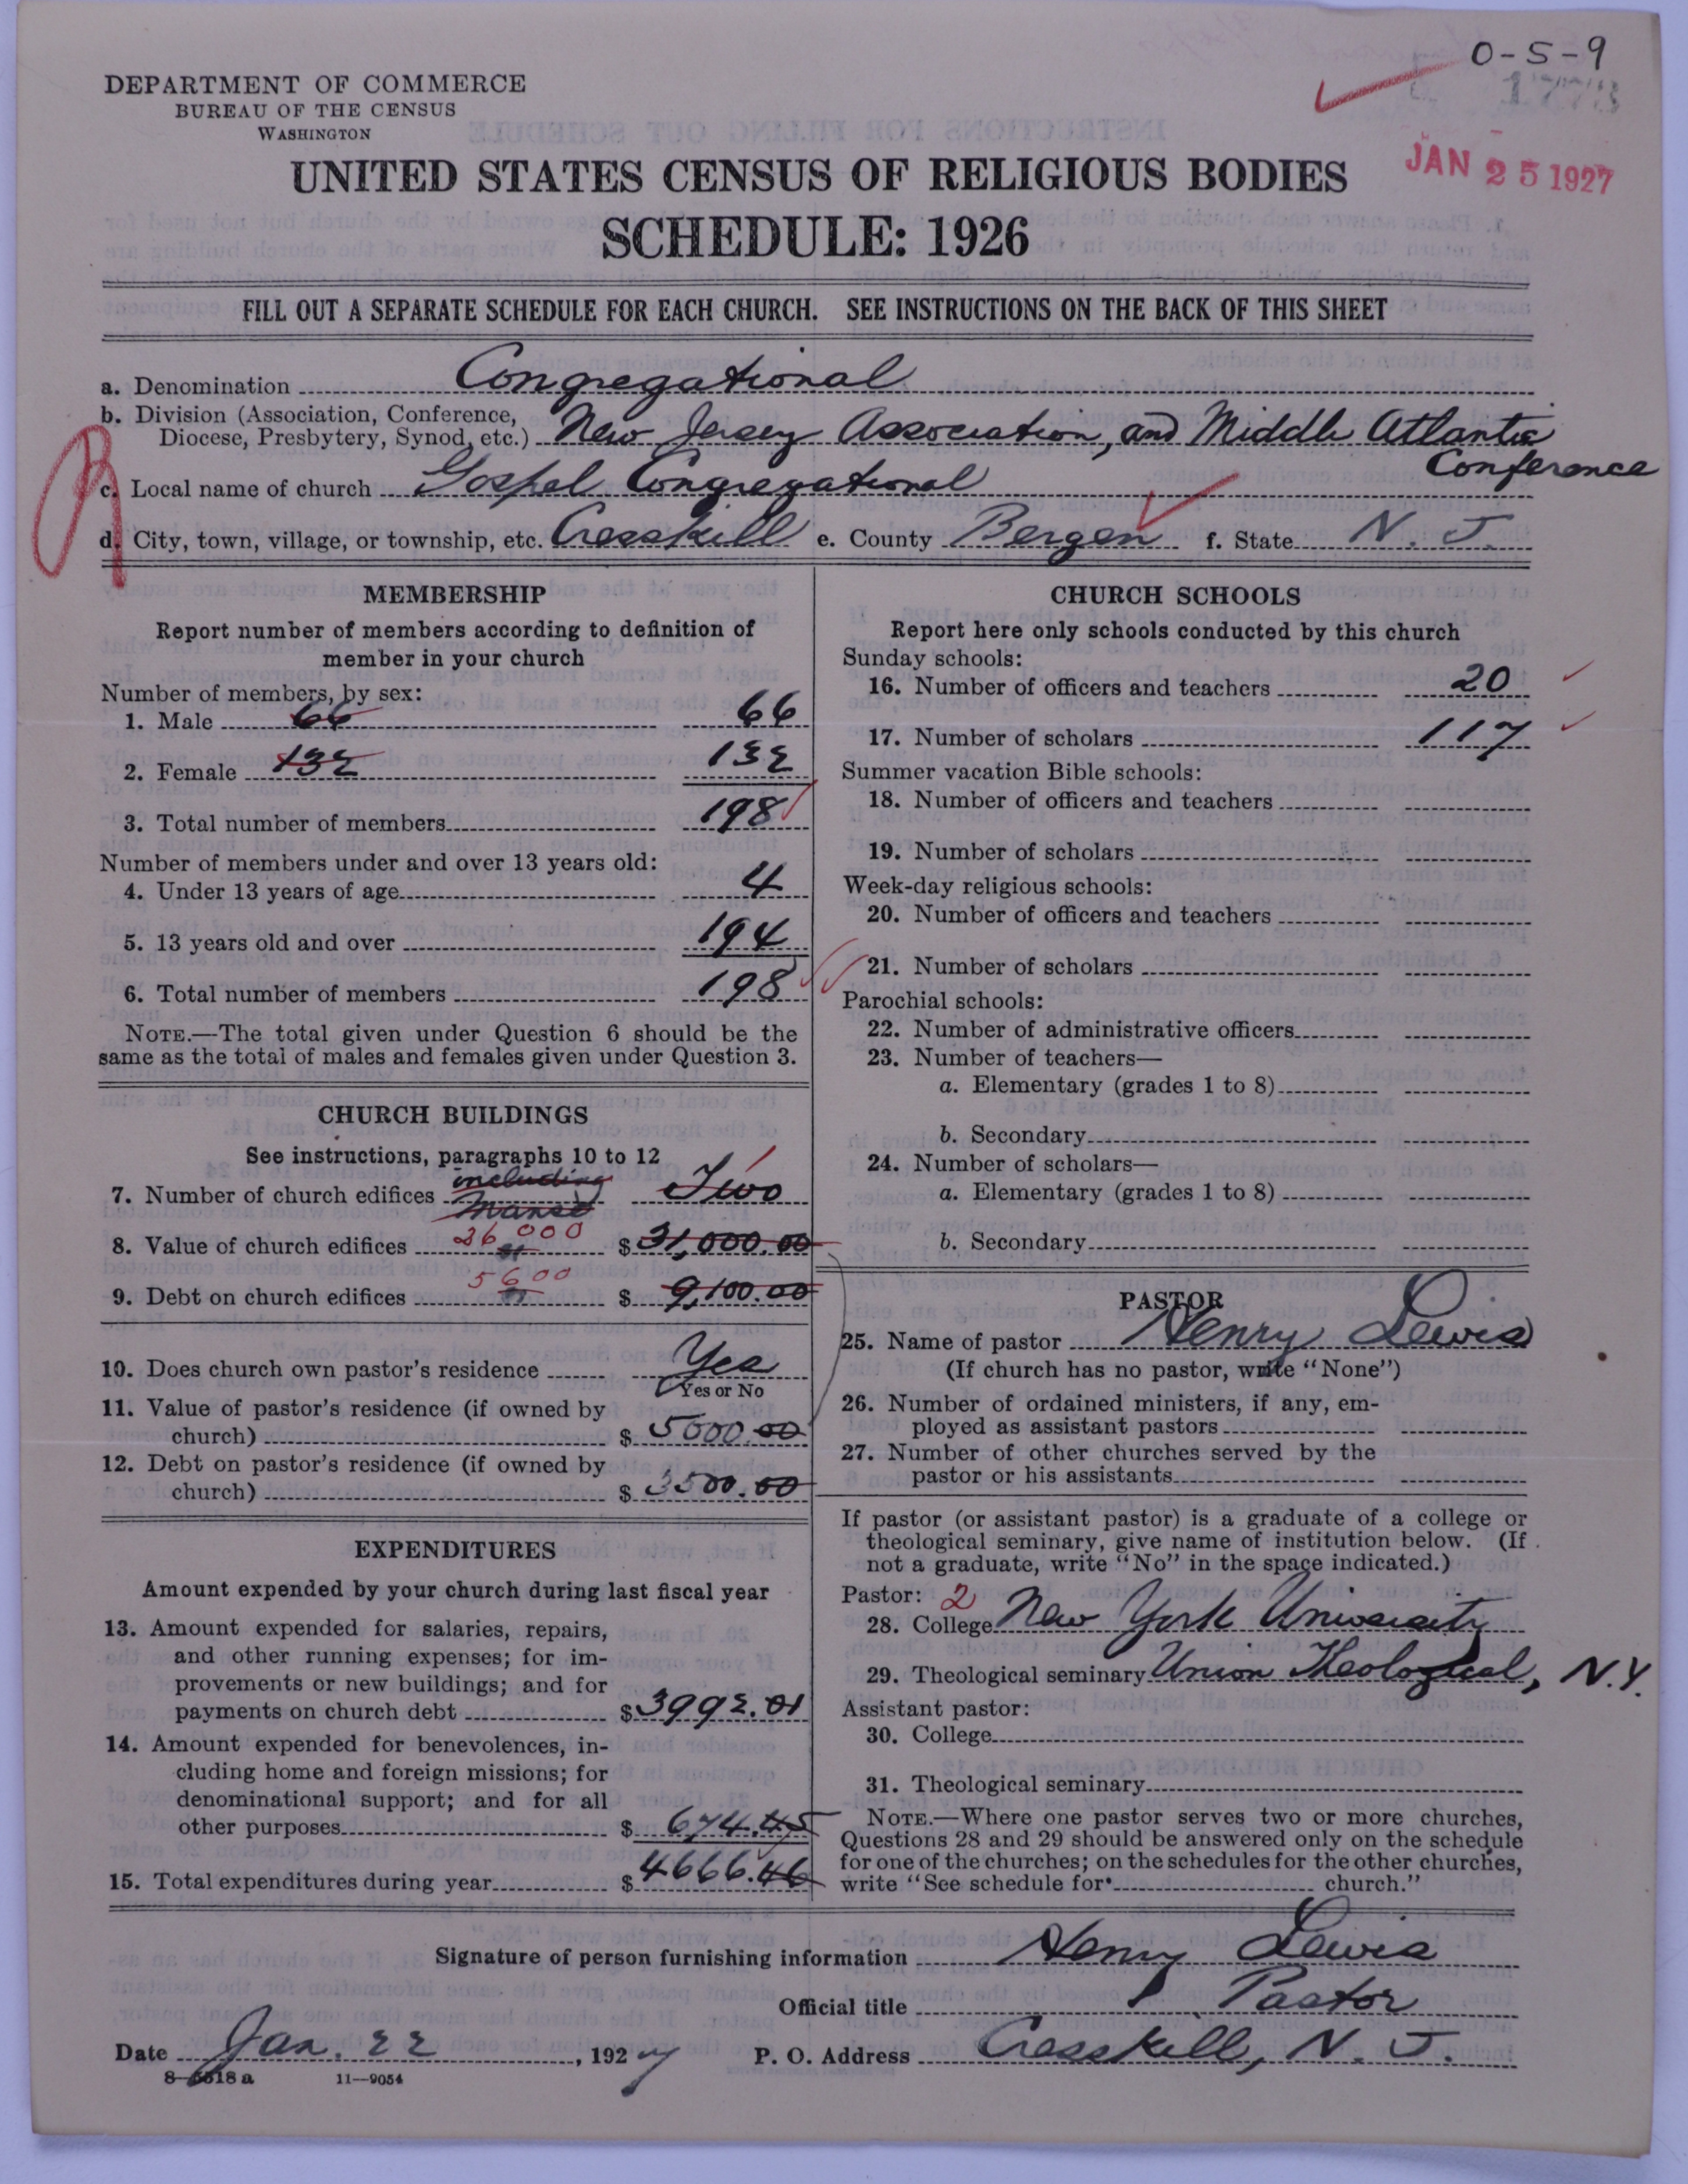 0-5-9
1773
JAN 25 1927
DEPARTMENT OF COMMERCE
BUREAU OF THE CENSUS
WASHINGTON
UNITED STATES CENSUS OF RELIGIOUS BODIES
SCHEDULE: 1926
FILL OUT A SEPARATE SCHEDULE FOR EACH CHURCH. SEE INSTRUCTIONS ON THE BACK OF THIS SHEET
a. Denomination Congregational
b. Division (Association, Conference,
Diocese, Presbytery, Synod, etc.) New Jersey Association, and Middle Atlantic
Conference
c. Local name of church Gospel Congregational
d. City, town, village, or township, etc. Cresskill e. County Bergen f. State N. J.
MEMBERSHIP
Report number of members according to definition of
member in your church
Number of members, by sex:
1. Male 66 66
2. Female 132 132
3. Total number of members 198
Number of members under and over 13 years old:
4. Under 13 years of age 4
5. 13 years old and over 194
6. Total number of members 198
NOTE.—The total given under Question 6 should be the
same as the total of males and females given under Question 3.
CHURCH BUILDINGS
See instructions, paragraphs 10 to 12
including
7. Number of church edifices manse Two
8. Value of church edifices 26000 $ 31,000.00
9. Debt on church edifices 5600 $ 9,100.00
10. Does church own pastor's residence Yes
Yes or No
11. Value of pastor's residence (if owned by
church) $ 5000.00
12. Debt on pastor's residence (if owned by
church) $ 3500.00
EXPENDITURES
Amount expended by your church during last fiscal year
13. Amount expended for salaries, repairs,
and other running expenses; for im-
provements or new buildings; and for
payments on church debt $ 3992.01
14. Amount expended for benevolences, in-
cluding home and foreign missions; for
denominational support; and for all
other purposes $ 674.45
15. Total expenditures during year $ 4666.46
CHURCH SCHOOLS
Report here only schools conducted by this church
Sunday schools:
16. Number of officers and teachers 20
17. Number of scholars 117
Summer vacation Bible schools:
18. Number of officers and teachers
19. Number of scholars
Week-day religious schools:
20. Number of officers and teachers
21. Number of scholars
Parochial schools:
22. Number of administrative officers
23. Number of teachers—
a. Elementary (grades 1 to 8)
b. Secondary
24. Number of scholars—
a. Elementary (grades 1 to 8)
b. Secondary
PASTOR
25. Name of pastor Henry Lewis
(If church has no pastor, write "None")
26. Number of ordained ministers, if any, em-
ployed as assistant pastors
27. Number of other churches served by the
pastor or his assistants
If pastor (or assistant pastor) is a graduate of a college or
theological seminary, give name of institution below. (If
not a graduate, write "No" in the space indicated.)
Pastor: 2
28. College New York University
29. Theological seminary Union Theological, N.Y.
Assistant pastor:
30. College
31. Theological seminary
NOTE.—Where one pastor serves two or more churches,
Questions 28 and 29 should be answered only on the schedule
for one of the churches; on the schedules for the other churches,
write "See schedule for church."
Signature of person furnishing information Henry Lewis
Official title Pastor
Date Jan. 22, 1927 P. O. Address Cresskill, N. J.
8-6518 a 11—9054